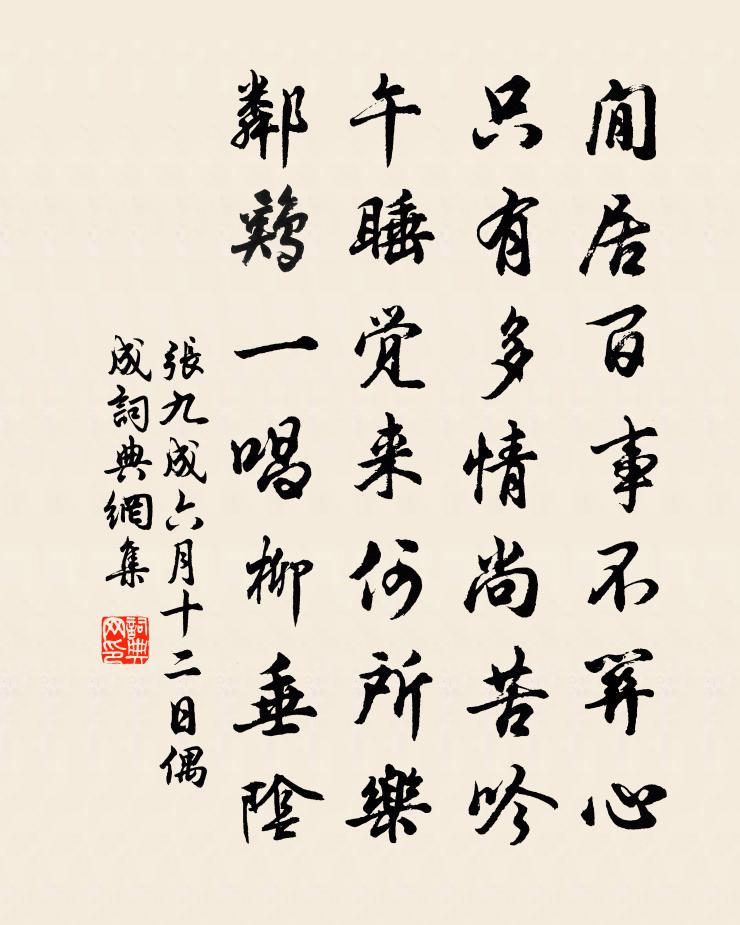 閒居百事不關心
只有多情尚苦吟
午睡觉来何所樂
鄰鷄一唱柳垂陰
張九成六月十二日偶
成詞典網集
詞典
网印